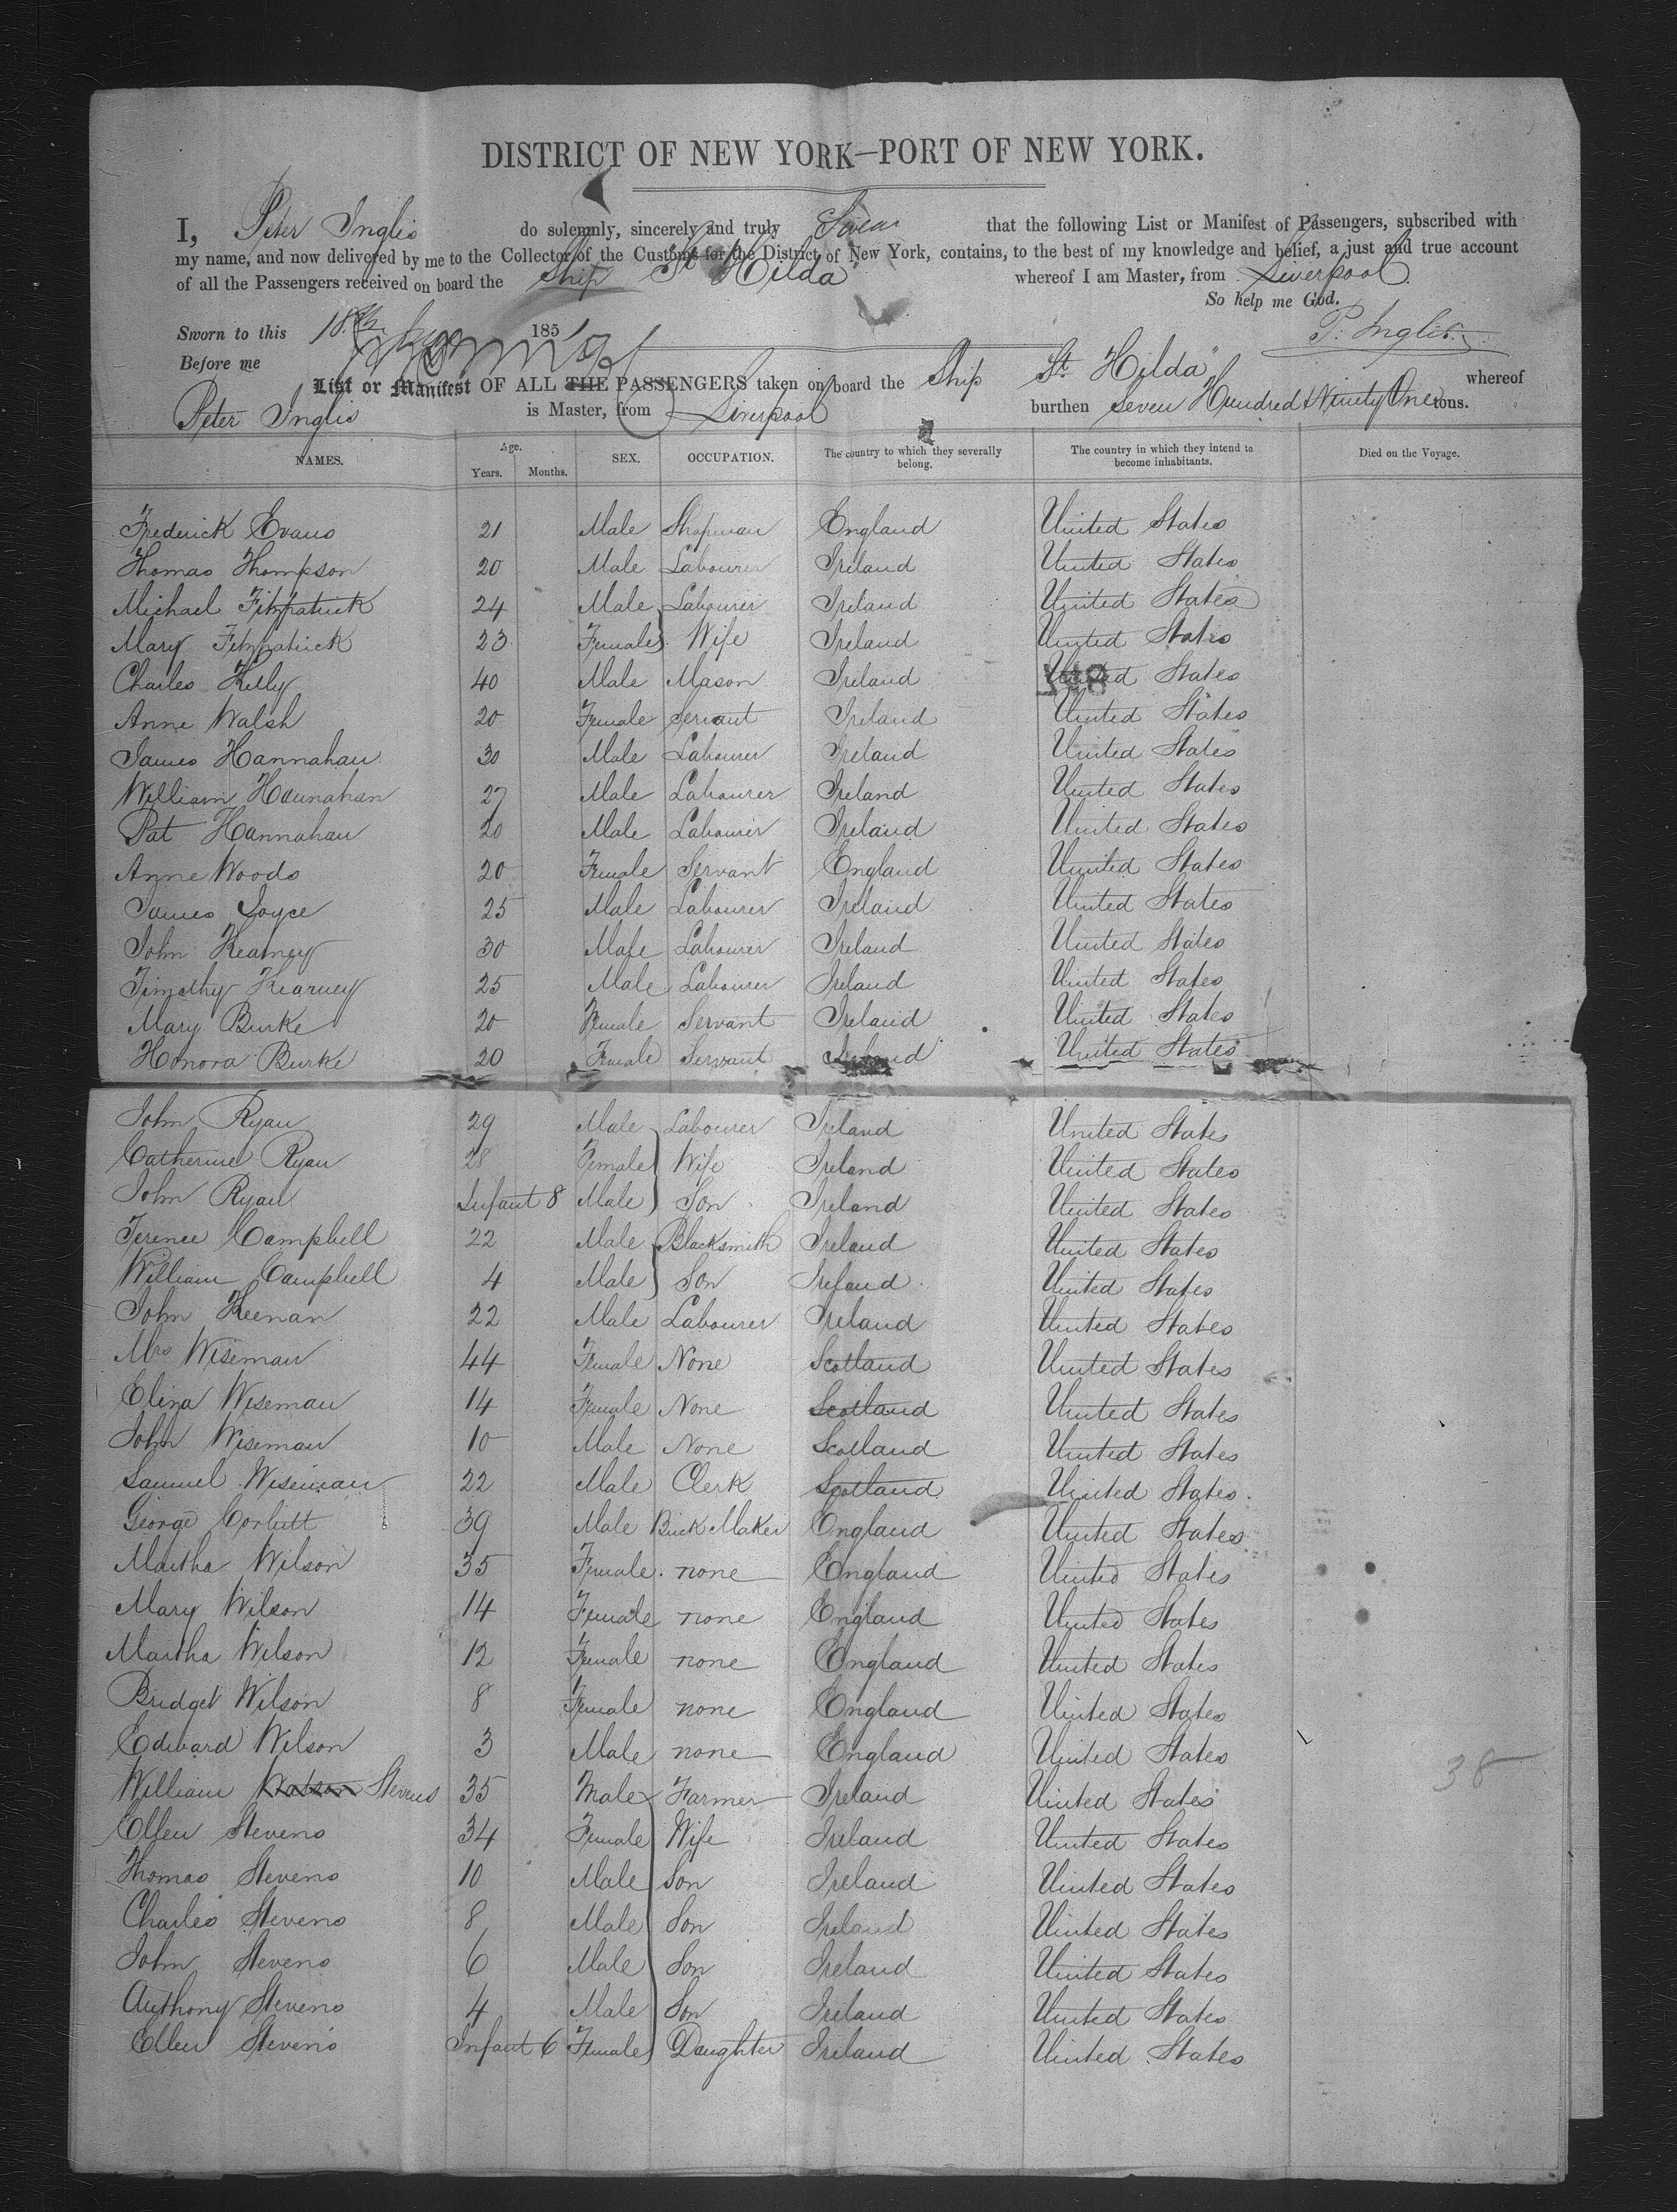 DISTRICT OF NEW YORK—PORT OF NEW YORK.
I, Peter Inglis do solemnly, sincerely and truly Swear that the following List or Manifest of Passengers, subscribed with
my name, and now delivered by me to the Collector of the Customs for the District of New York, contains, to the best of my knowledge and belief, a just and true account
of all the Passengers received on board the Ship St Hilda whereof I am Master, from Liverpool
So help me God.
Sworn to this 18th 1851 P. Inglis.
Before me
List or Manifest OF ALL THE PASSENGERS taken on board the Ship St. Hilda" whereof
Peter Inglis is Master, from Liverpool burthen Seven Hundred & Ninety One tons.
NAMES. Age. Years. Months. SEX. OCCUPATION. The country to which they severally belong. The country in which they intend to become inhabitants. Died on the Voyage.
Frederick Evans 21 Male Shopman England United States
Thomas Thompson 20 Male Labourer Ireland United States
Michael Fitzpatrick 24 Male Labourer Ireland United States
Mary Fitzpatrick 23 Female Wife Ireland United States
Charles Kelly 40 Male Mason Ireland United States
Anne Walsh 20 Female Servant Ireland United States
James Hannahan 30 Male Labourer Ireland United States
William Hannahan 27 Male Labourer Ireland United States
Pat Hannahan 20 Male Labourer Ireland United States
Anne Woods 20 Female Servant England United States
James Joyce 25 Male Labourer Ireland United States
John Kearney 30 Male Labourer Ireland United States
Timothy Kearney 25 Male Labourer Ireland United States
Mary Burke 20 Female Servant Ireland United States
Honora Burke 20 Female Servant Ireland United States
John Ryan 29 Male Labourer Ireland United States
Catherine Ryan 28 Female Wife Ireland United States
John Ryan Infant 8 Male Son Ireland United States
Terence Campbell 22 Male Blacksmith Ireland United States
William Campbell 4 Male Son Ireland United States
John Keenan 22 Male Labourer Ireland United States
Mrs Wiseman 44 Female None Scotland United States
Eliza Wiseman 14 Female None Scotland United States
John Wiseman 10 Male None Scotland United States
Samuel Wiseman 22 Male Clerk Scotland United States
George Corbitt 39 Male Brick Maker England United States
Martha Wilson 35 Female none England United States
Mary Wilson 14 Female none England United States
Martha Wilson 12 Female none England United States
Bridget Wilson 8 Female none England United States
Edward Wilson 3 Male none England United States
38
William Watson Stevens 35 Male Farmer Ireland United States
Ellen Stevens 34 Female Wife Ireland United States
Thomas Stevens 10 Male Son Ireland United States
Charles Stevens 8 Male Son Ireland United States
John Stevens 6 Male Son Ireland United States
Anthony Stevens 4 Male Son Ireland United States
Ellen Stevens Infant 6 Female Daughter Ireland United States